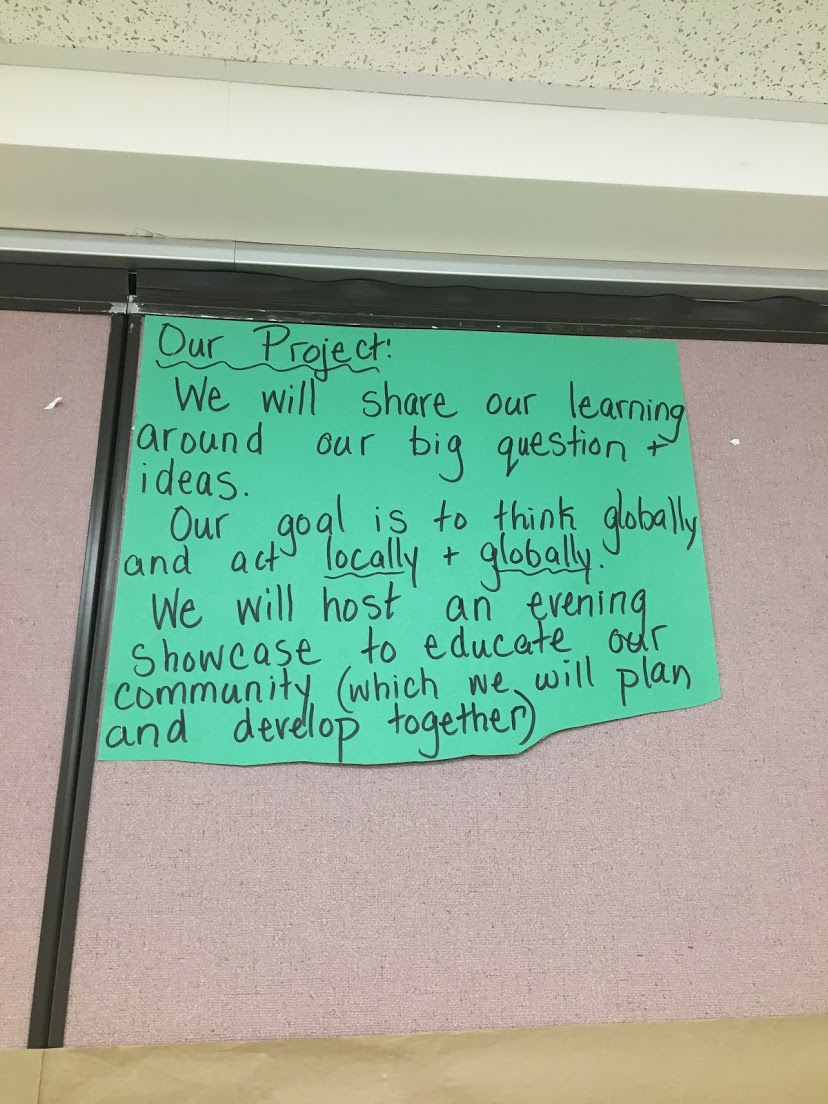 Our Project:
We will share our learning
around our big question +
ideas.
Our goal is to think globally
and act locally + globally.
We will host an evening
showcase to educate our
community (which we will plan
and develop together)